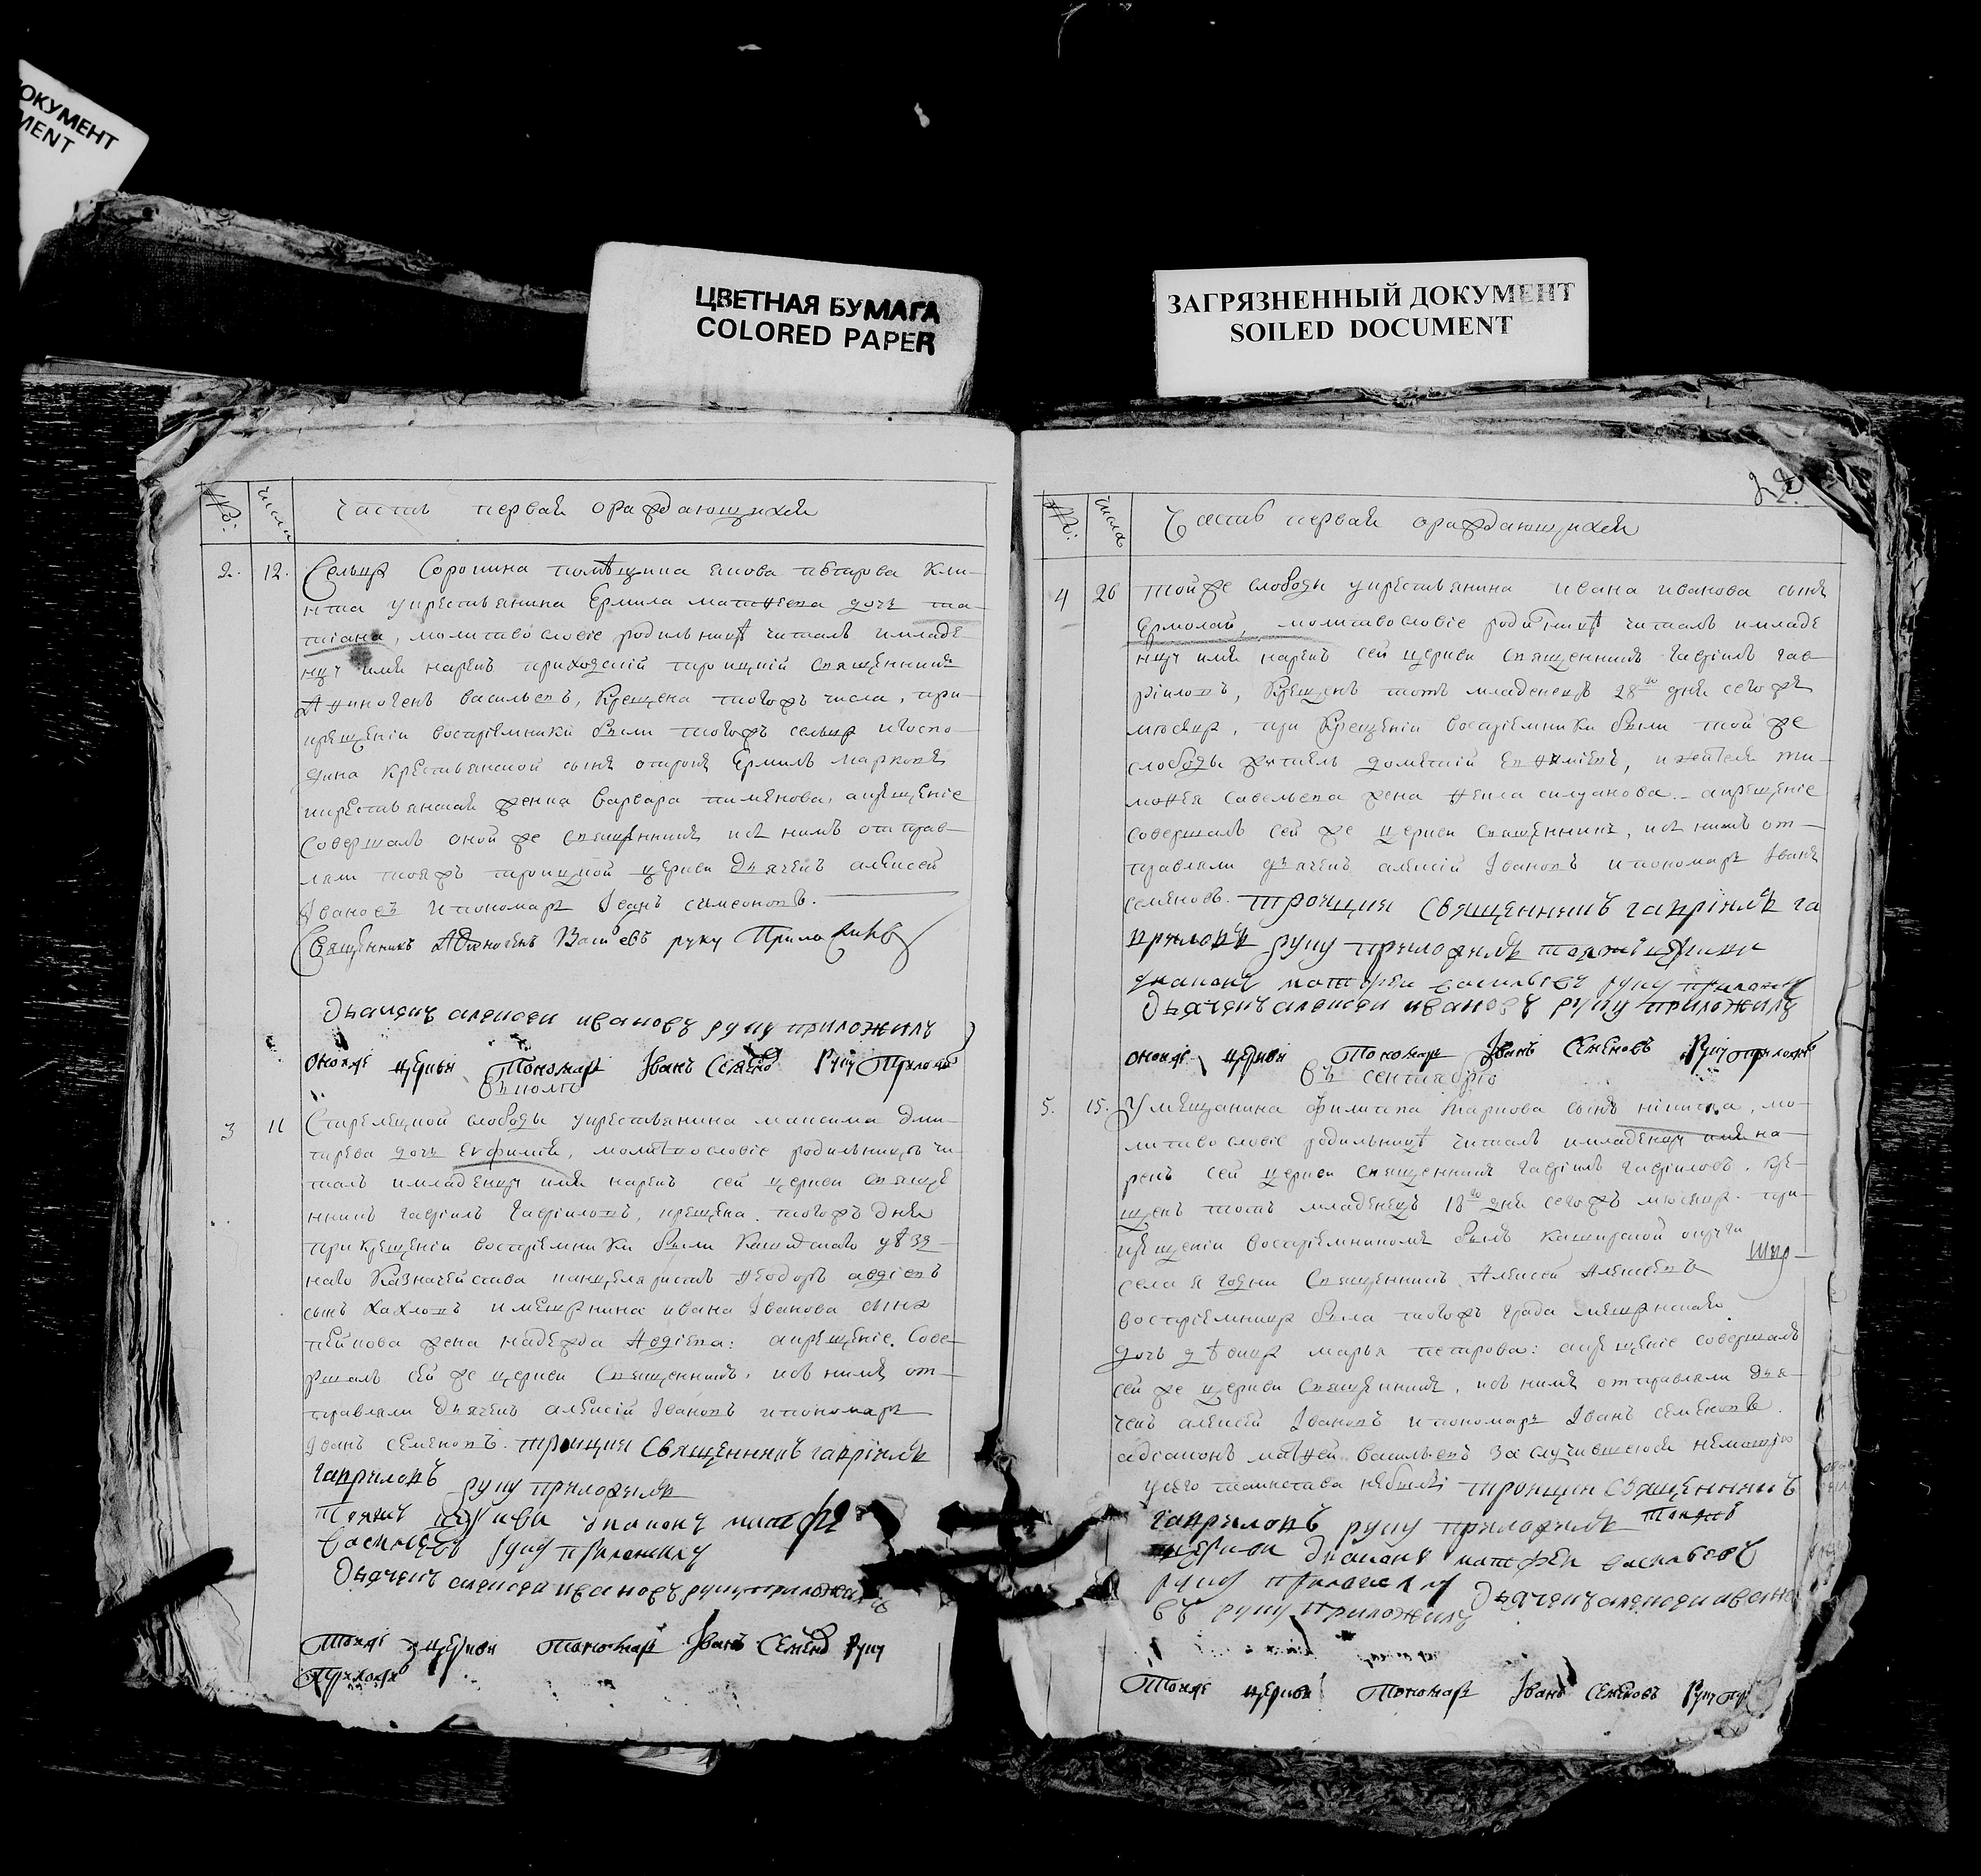 ОКУМЕНТ
MENT
ЦВЕТНАЯ БУМАГА
COLORED PAPER
ЗАГРЯЗНЕННЫЙ ДОКУМЕНТ
SOILED DOCUMENT
№: числа Часть первая ораждающихся
2. 12. Сельца Сорокина помѣщика якова петрова
крестьянина Ермила матѳеева дочь та-
тиана, молитвословіе родильницѣ читалъ имладе
нцу имя нарекъ приходскій троицкій священникъ
Аѳиногенъ васильевъ, Крещена тогожъ числа, при
крещеніи воспріемники были тогожъ сельца игоспо-
дина Крестьянской сынъ отрокъ Ермилъ марковъ
икрестьянская женка варвара пименова, акрещеніе
совершалъ оной же священникъ исъ нимъ отправ-
ляли тояжъ троицкой церкви Дьячекъ алексей
Івановъ ипономарь Іванъ симеоновъ.
Священникъ Аѳиногенъ Васильевъ руку Приложилъ
Дьячекъ алексеи ивановъ руку приложилъ
оноже церкви Пономарь Іванъ Семено руку Приложи
въ июле
3 11 Стрелецкой слободы укрестьянина максима дми-
трева дочь Евфимія, молитвословіе родильницѣ чи-
талъ имладенцу имя нарекъ сей церкви свяще
нникъ гавріилъ Гавріиловъ, крещена тогожъ дня
прикрещеніи воспріемники были Каширскаго уѣзд-
наго Казначейства канцеляристъ ѳеодоръ авдіевъ
сынъ Хахловъ имещанина ивана Іванова сына
пейкова жена надежда Авдіева: акрещеніе сове-
ршалъ сей же церкви священникъ, исъ нимъ от-
правляли Дьячекъ алексій Івановъ ипономарь
Іванъ семеновъ. троицкия Священникъ гавріилъ
гавриловъ руку приложилъ
Тояжъ церкви диаконъ матфе
васильевъ руку приложилъ
Дьячекъ алексеи ивановъ руку приложилъ
Тояже церкви Пономарь Іванъ Семено руку
Приложи
№: числа Часть первая ораждающихся
4 26 тойже слободы укрестьянина ивана иванова сынъ
Ермолай, молитвословіе родильницѣ читалъ имладе
нцу имя нарекъ сей церкви священникъ гавріилъ гав-
ріиловъ, Крещенъ тотъ младенецъ 28го дня сегожъ
месяца, при Крещеніи воспріемники были той же
слободы житель дометій Евѳиміевъ, ижителя ти-
моѳея савельева жена ѳекла силуанова. акрещеніе
совершалъ сей же церкви священникъ, исъ нимъ от-
правляли дьячекъ алексій Івановъ ипономарь Іванъ
семеновъ. троицкия Священникъ гавріилъ га
вриловъ руку приложилъ тояже церкви
диаконъ матфеи васильевъ руку приложилъ
Дьячекъ алексеи ивановъ руку приложилъ
оноже церкви Пономарь Іванъ Семеновъ Руку приложи
въ сентябрѣ
5. 15. Умещанина филиппа Маркова сынъ нікита, мо-
литвословіе родильницѣ читалъ имладенцу имя на-
рекъ сей церкви священникъ гавріилъ гавріиловъ. кре-
щенъ тотъ младенецъ 18го дня сегожъ месяца. при
крещеніи воспріемникомъ былъ каширской округи
села священникъ Алексей Алексеевъ
воспріемница была тогожъ града мещанская
дочь дѣвица марья петрова: акрещеніе совершалъ
сей же церкви священникъ, исъ нимъ отправляли Дья-
чекъ алексей Івановъ ипономарь Іванъ семеновъ.
адіаконъ матѳей васильевъ за случившеюся немощію
усего таинства небылъ троицкия Священникъ
гавриловъ руку приложилъ тояжъ
церкви диаконъ матфеи васильевъ
руку приложилъ Дьячекъ алексеи ивано
въ руку приложилъ
Тояже церкви Пономарь Іванъ Семеновъ Руку при